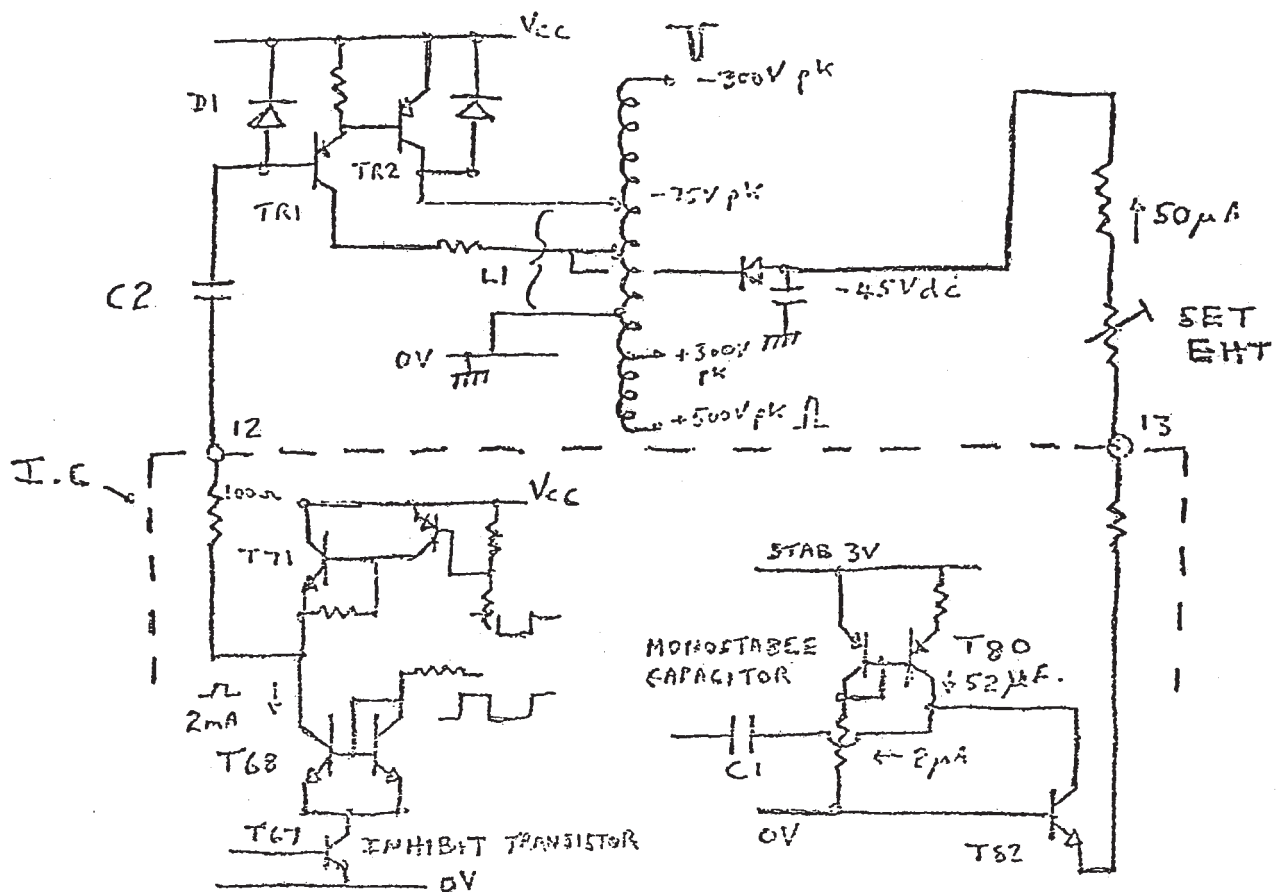 Vcc
-300V pk
D1
TR2
TR1
-75V pk
50µA
L1
C2
-45Vdc
SET
EHT
0V
+300V
pk
+500V pk
12
13
I.C
100Ω
Vcc
T71
STAB 3V
MONOSTABLE
CAPACITOR
T80
52µF.
2mA
T68
C1
2µA
T67
INHIBIT TRANSISTOR
0V
0V
T82